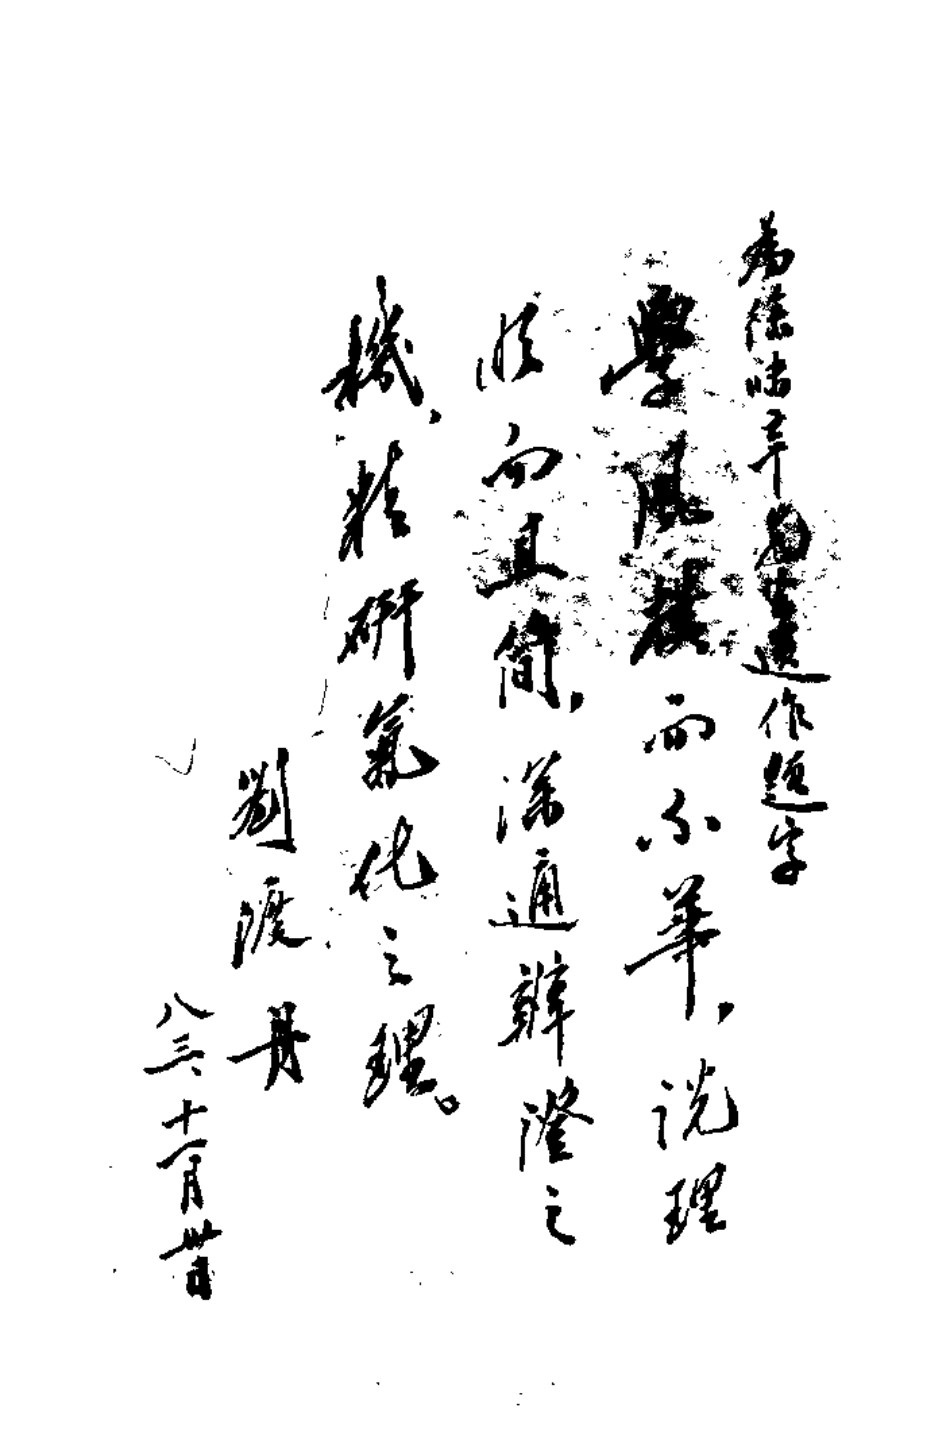 為遺作題字
學風樸而不華，説理
而且簡，深通辨證之
機，精研氣化之理。
劉渡舟
八三、十一月卅日